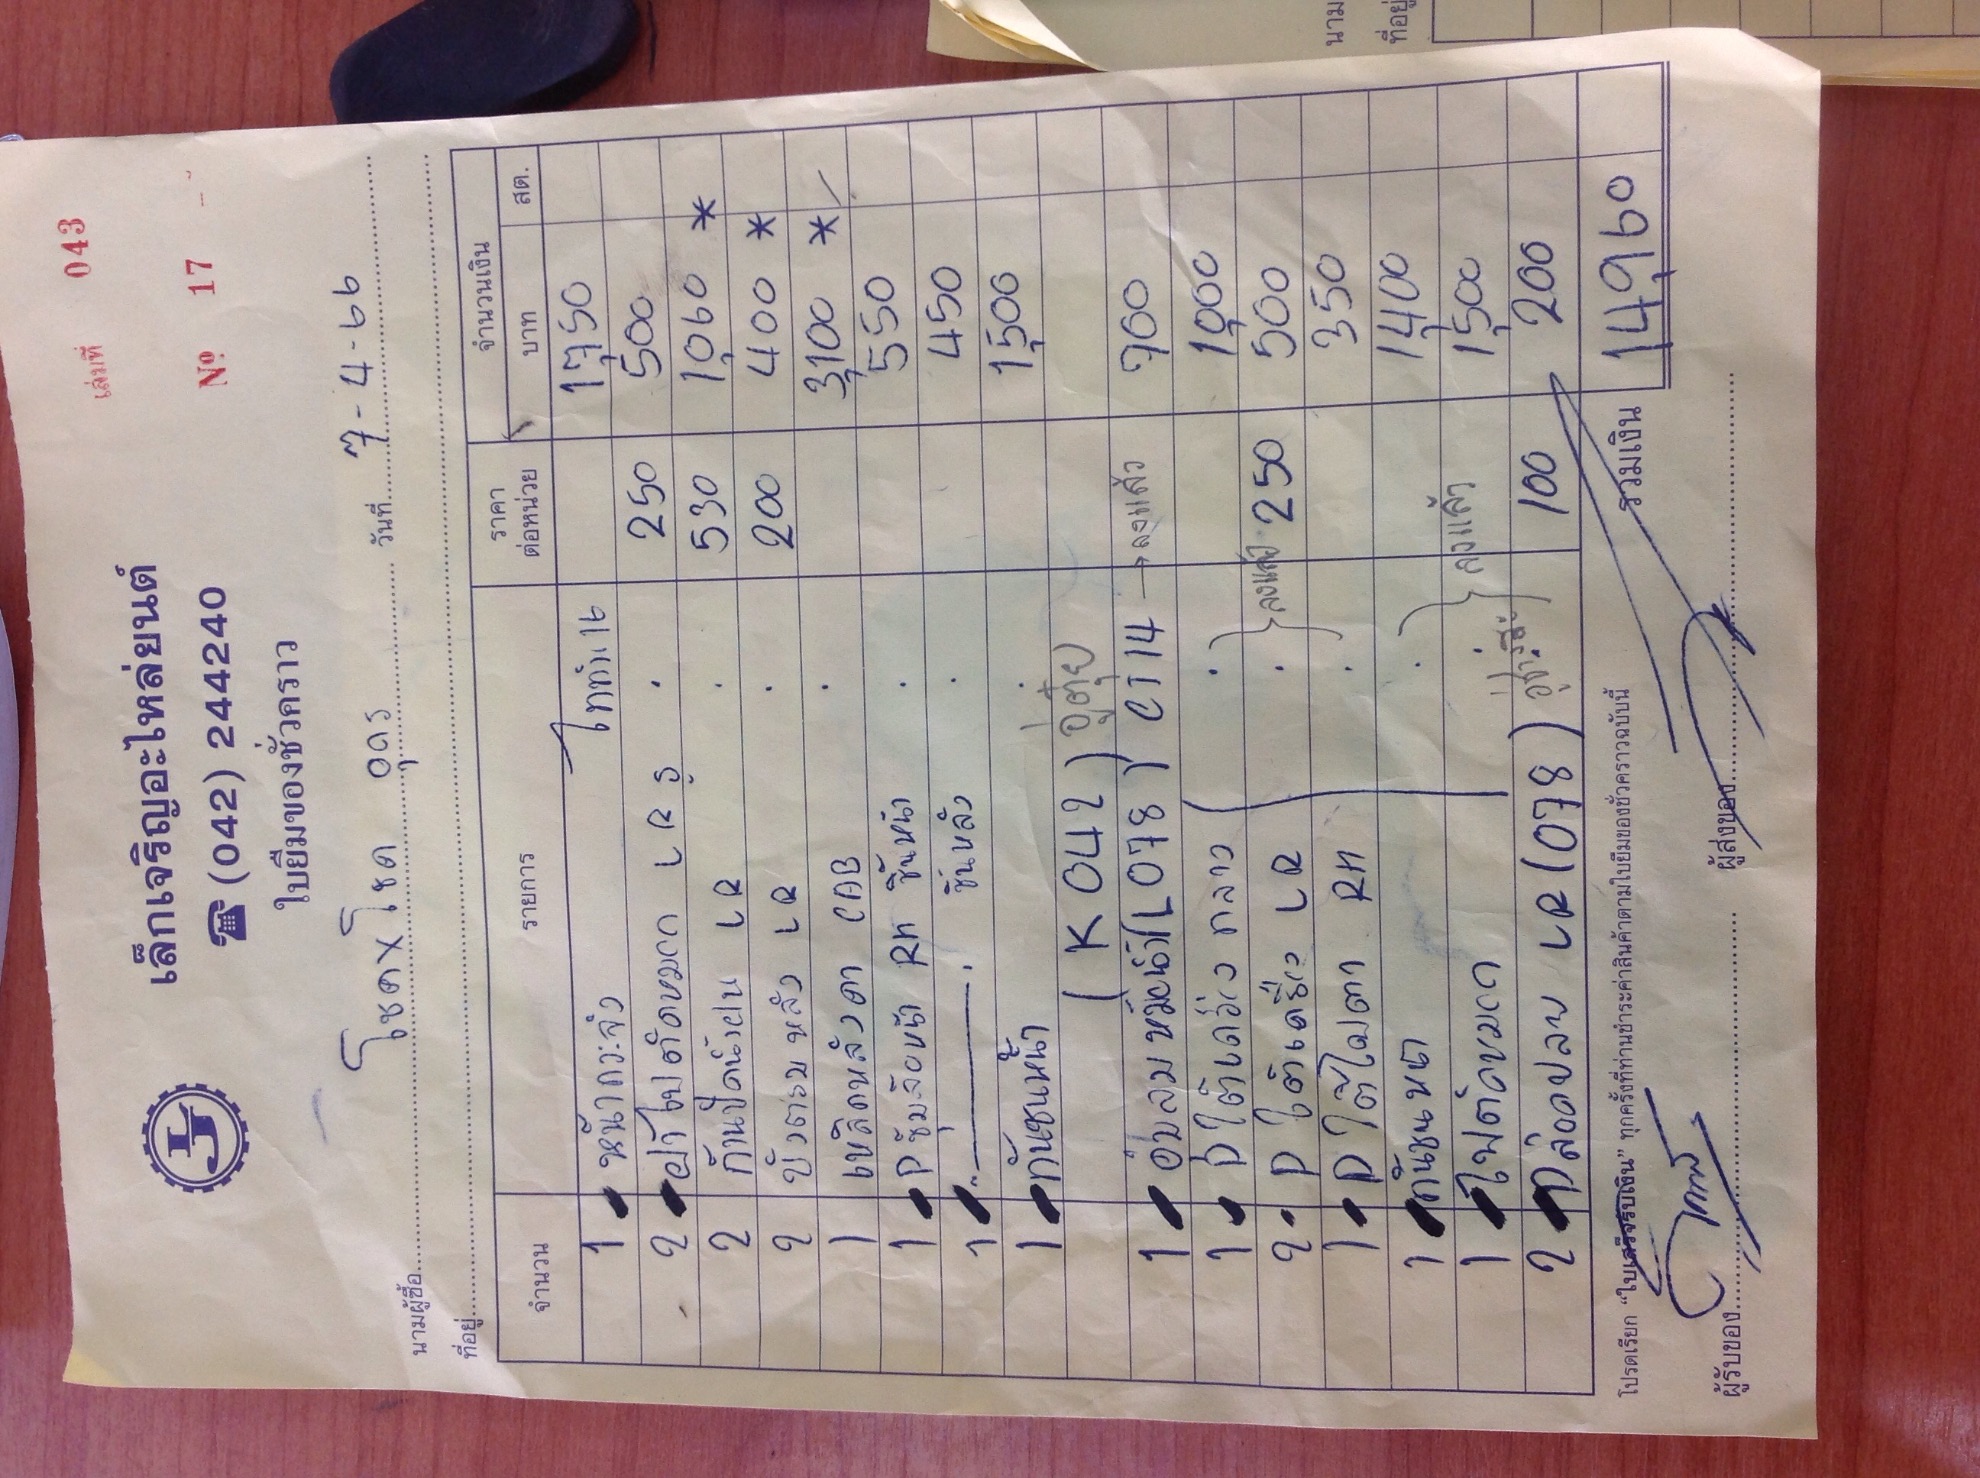 เล่มที่ 043
เล็กเจริญอะไหล่ยนต์
№ 17
☎ (042) 244240
ใบยืมของชั่วคราว
นามผู้ซื้อ โชคxโชค อุดร วันที่ 7-4-66
ที่อยู่
จำนวน รายการ ราคาต่อหน่วย จำนวนเงิน
บาท สต.
1 หน้ากระจัง ไททัน 16 1,750
2 ฝาไฟตัดหมอก LR 250 500
2 ก้านปัดน้ำฝน LR 530 1,060 *
2 บังตะบบหลัง LR 200 400 *
1 เหล็กหลังคา CAB 3,100 *
1 P ซุ้มล้อหน้า RH ชิ้นหน้า 550
1 " ชิ้นหลัง 450
1 กันชนหน้า 1,500
(K 042) อู่ตุ้ย
1 อุ่นลมหม้อน้ำ (L078) CT14 → ลงแล้ว 700
1 P ใต้เดี่ยว กลาง 1,000
2 P ใต้เดี่ยว LR ลงแล้ว 250 500
1 P ใต้ไฟตา RH 350
1 กันชนหน้า 1,400
1 ไฟตัดหมอก ลงแล้ว 1,500
2 กล่องปลาย LR (078) 100 200
รวมเงิน 14,960
โปรดเรียก "ใบเสร็จรับเงิน" ทุกครั้งที่ท่านชำระค่าสินค้าตามใบยืมของชั่วคราวฉบับนี้
ผู้รับของ ผู้ส่งของ
นาม
ที่อยู่